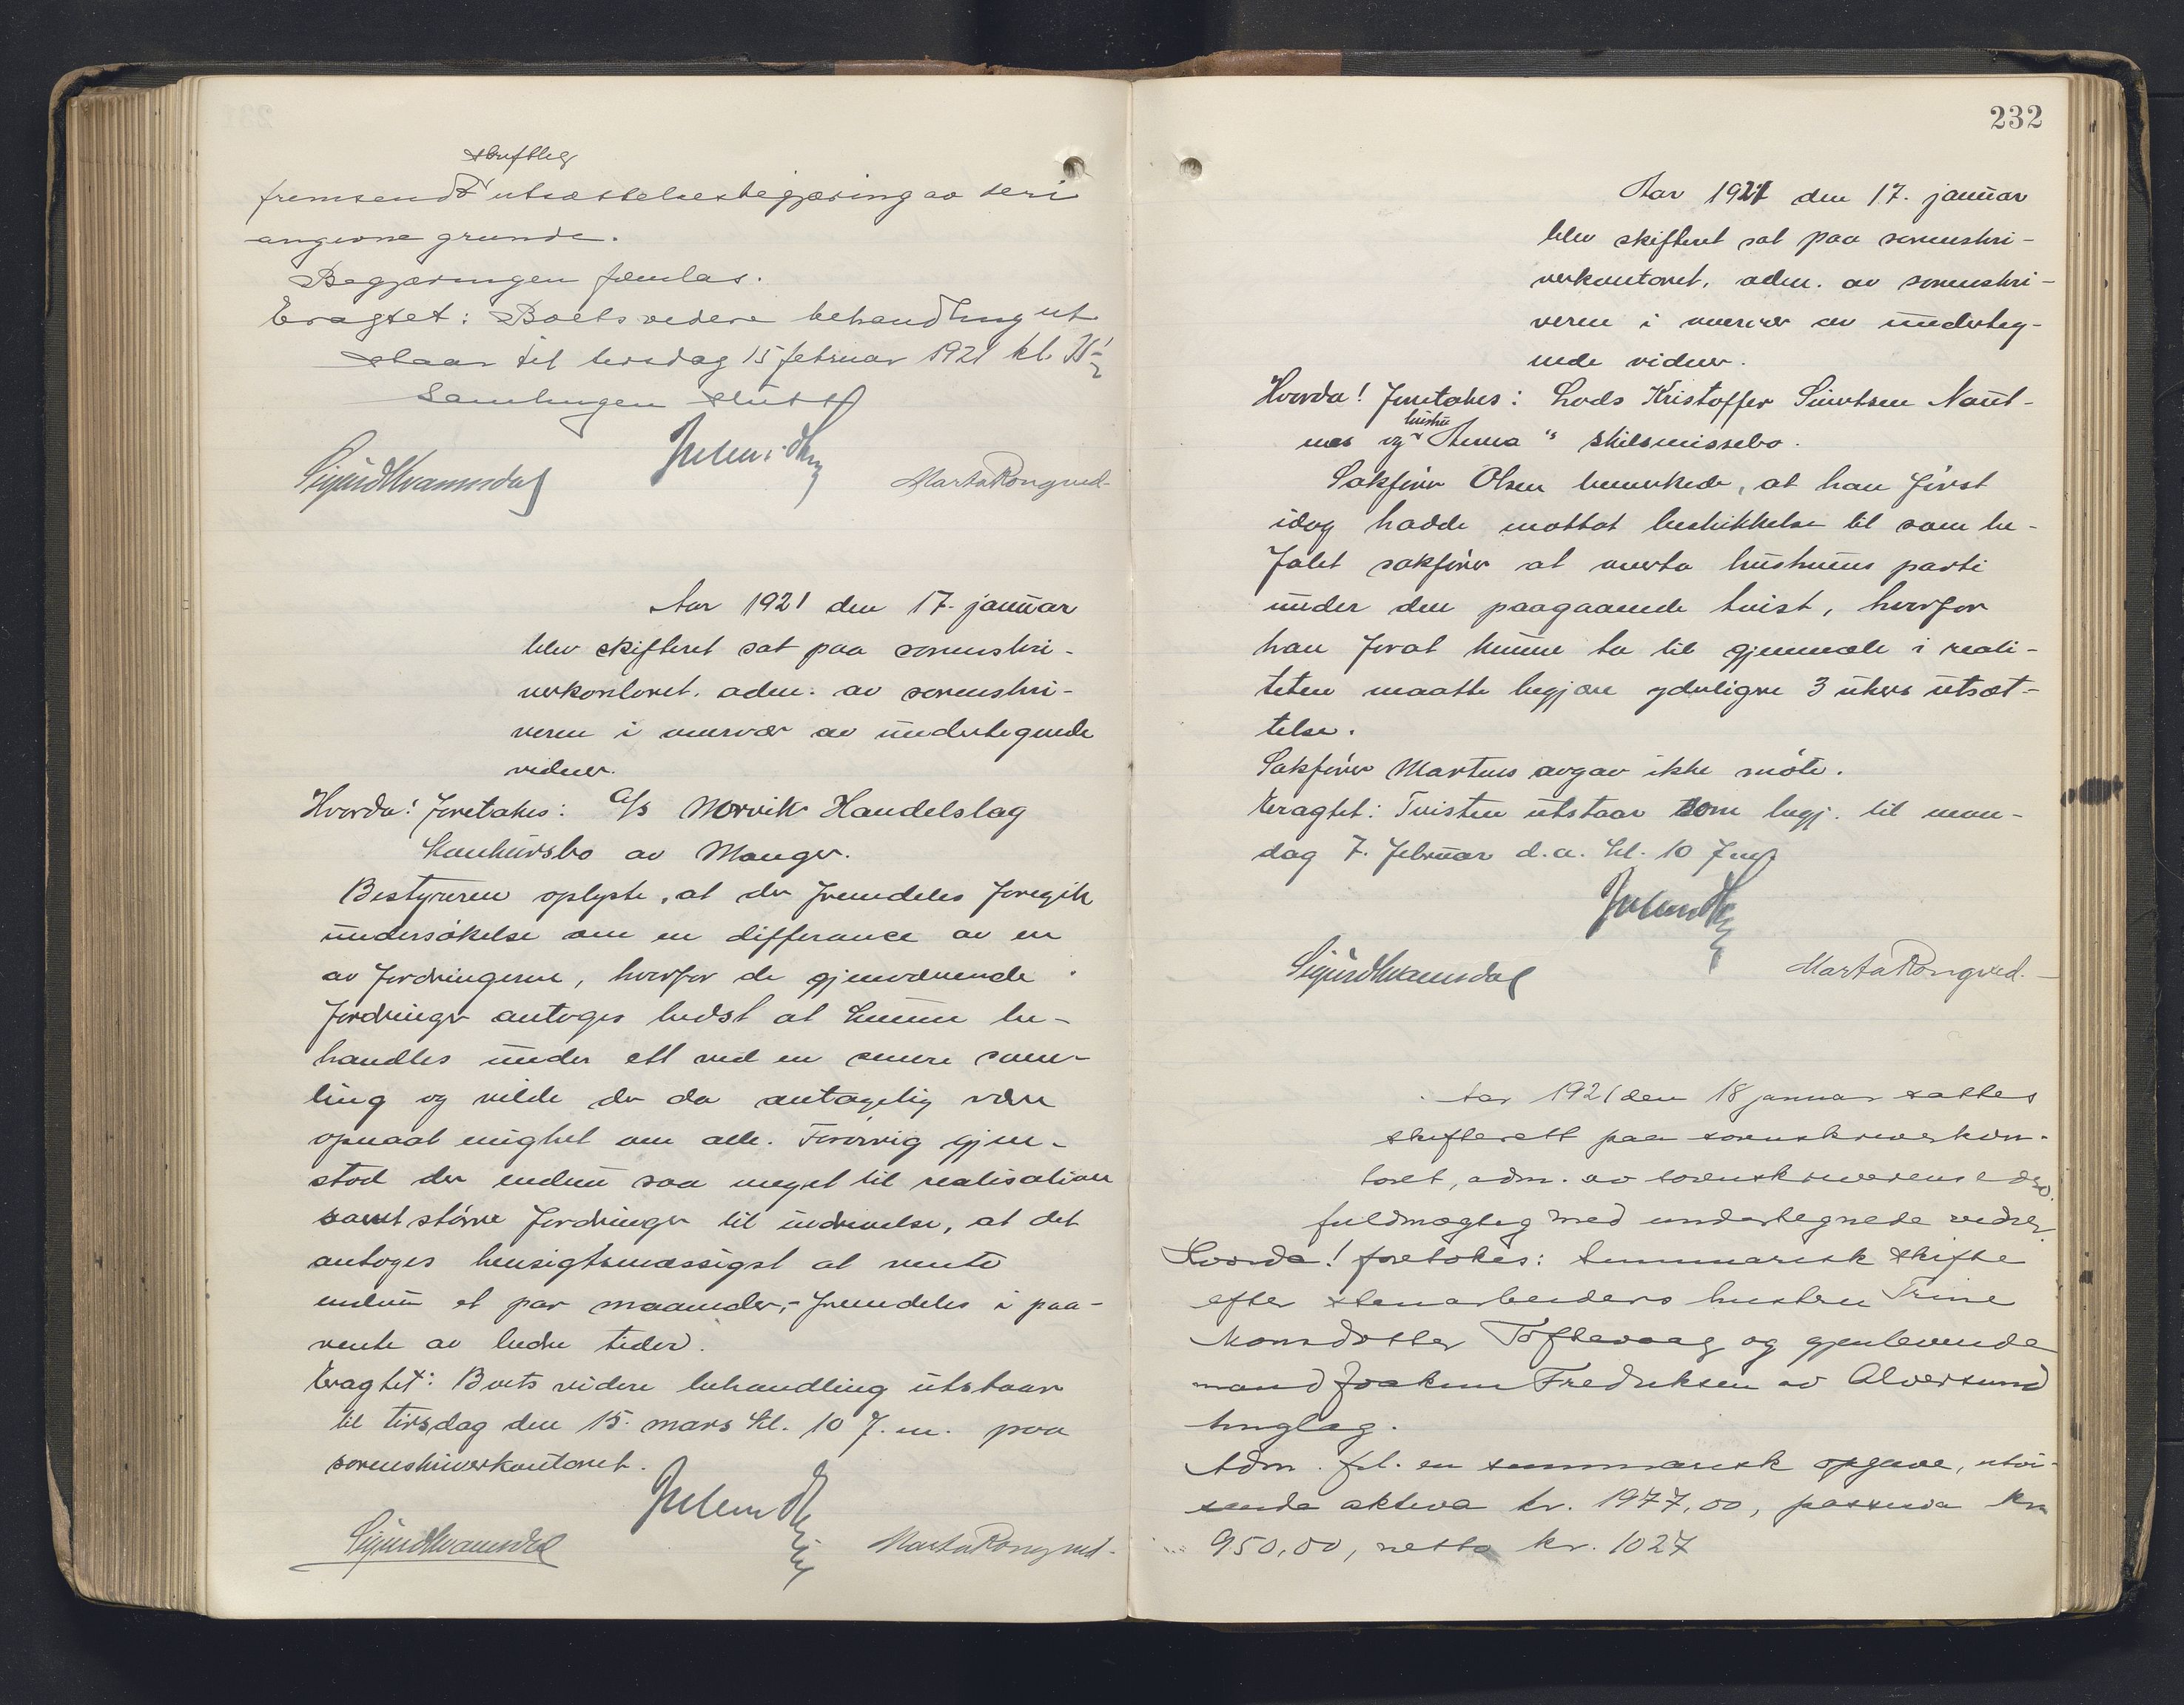 skriftlig
fremsendt utsættelsesbegjæring av deri
angivne grunde.
Begjæringen fremlas.
Eragtet: Boets videre behandling ut
staar til tirsdag 15 februar 1921 kl.
Samlingen sluttet
Sigurd Kvammsdal Marta Rongved.
Aar 1921 den 17. januar
blev skifteret sat paa sorenskri-
verkontoret. adm. av sorenskri-
veren i overvær av undertegnede
vidner.
Hvorda! foretakes: A/s Norvik Handelslag
konkursbo av Manger.
Bestyreren oplyste, at der fremdeles foregik
undersøkelse om en differance av en
av fordringerne, hvorfor de gjenværende
fordringer antoges bedst at kunne be-
handles under ett ved en senere sam-
ling og vilde der da antagelig være
opnaat enighet om alle. Forøvrig gjen-
stod der endnu saa meget til realisation
samt større fordringer til inddrivelse, at det
antoges hensigtsmæssigst at vente
endnu et par maaneder, - fremdeles i paa-
vente av bedre tider.
Eragtet: Boets videre behandling utstaar
til tirsdag den 15. mars kl. 10 f.m. paa
sorenskriverkontoret.
Sigurd Kvamsdal Marta Rongved.
232
Aar 1921 den 17. januar
blev skifteret sat paa sorenskri-
verkontoret, adm. av sorenskri-
veren i overvær av underteg-
nede vidner.
Hvorda! foretakes: Lods Kristoffer Sivertsen Naut-
hustru
nes og Anna "s skilsmissebo.
Sakfører Olsen bemerkede, at han først
idag hadde mottat beskikkelse til som be-
falet sakfører at ivareta hustruens parti
under den paagaaende tvist, hvorfor
han forat kunne ta til gjenmæle i reali-
teten maatte begjære yderligere 3 ukers utsæt-
telse.
Sakfører Martens avgav ikke møte.
Eragtet: Tvisten utstaar som begj. til man-
dag 7. februar d.a. kl. 10 fm
Sigurd Kvamsdal Marta Rongved.
Aar 1921 den 18 januar sattes
skifterett paa sorenskriverkon-
toret, adm. av sorenskriverens edsv.
fuldmægtig med undertegnede vidner
Hvorda! foretokes: Summarisk skifte
efter stenarbeiders hustru Trine
Monsdotter Toftevaag og gjenlevende
mand Joakim Fredriksen av Alversund
tinglag.
Adm. frl. en summarisk opgave, utvi-
sende aktiva kr. 1977,00, passiva kr
950,00, netto kr. 1027